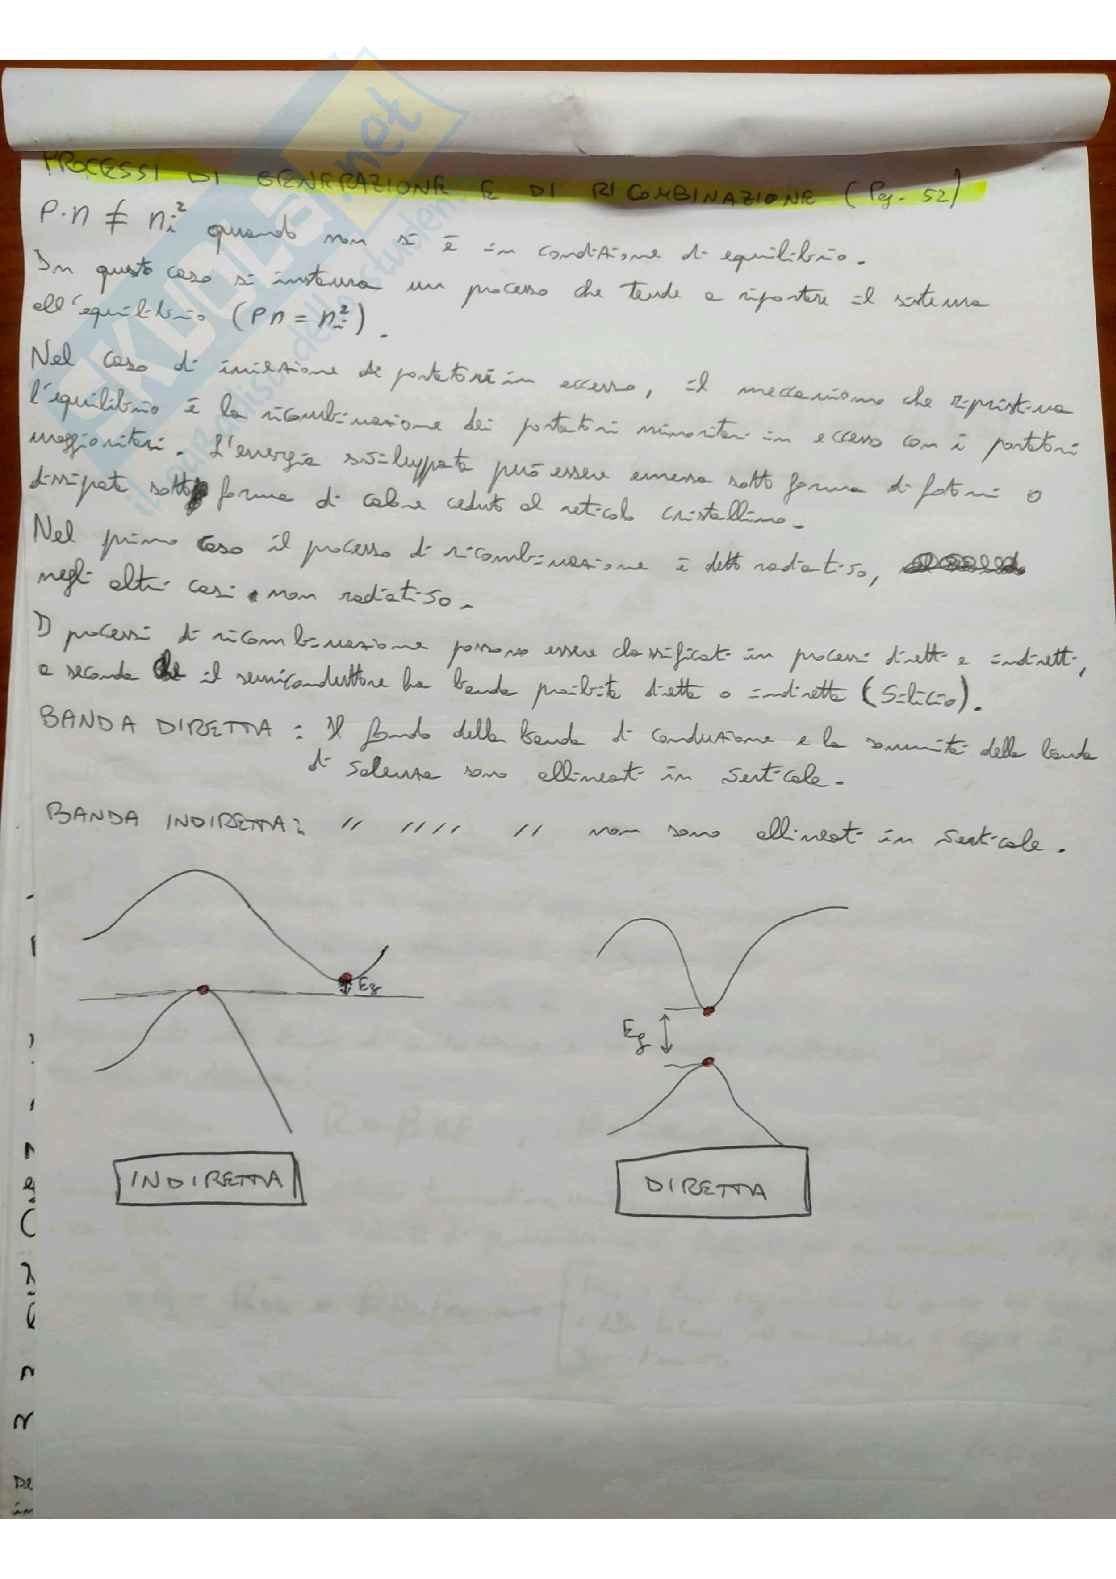 PROCESSI DI GENERAZIONE E DI RICOMBINAZIONE (Pg. 52)
P·n ≠ ni² quando non si è in condizione di equilibrio.
In questo caso si instaura un processo che tende a riportare il sistema
all'equilibrio (Pn = ni²).
Nel caso di iniezione di portatori in eccesso, il meccanismo che ripristina
l'equilibrio è la ricombinazione dei portatori minoritari in eccesso con i portatori
maggioritari. L'energia sviluppata può essere emessa sotto forma di fotoni o
dissipata sotto forma di calore ceduto al reticolo cristallino.
Nel primo caso il processo di ricombinazione è detto radiativo,
negli altri casi non radiativo.
I processi di ricombinazione possono essere classificati in processi diretti e indiretti,
a seconda che il semiconduttore ha banda proibita diretta o indiretta (Silicio).
BANDA DIRETTA: Il fondo della banda di conduzione e la sommità della banda
di valenza sono allineati in verticale.
BANDA INDIRETTA: // //// // non sono allineati in verticale.
Eg
Eg
INDIRETTA
DIRETTA
SKUOLA.net
il paradiso dello studente